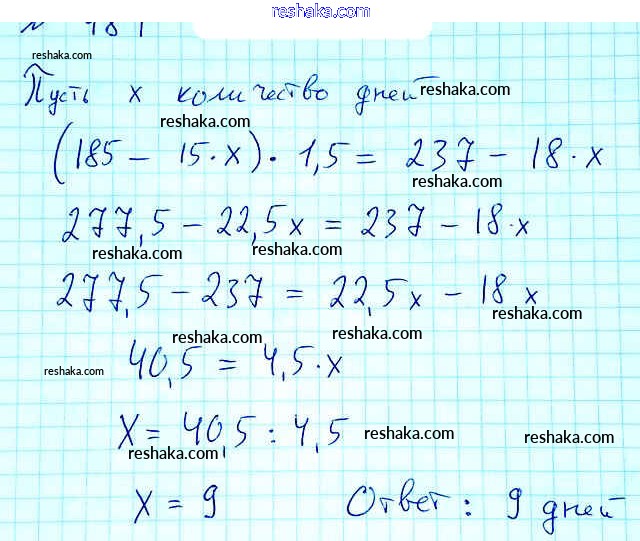 reshaka.com
Пусть x количество дней
(185 - 15·x)·1,5 = 237 - 18·x
277,5 - 22,5x = 237 - 18·x
277,5 - 237 = 22,5x - 18x
40,5 = 4,5·x
X = 40,5 : 4,5
X = 9 Ответ: 9 дней
reshaka.com
reshaka.com
reshaka.com
reshaka.com
reshaka.com
reshaka.com
reshaka.com
reshaka.com
reshaka.com
reshaka.com
reshaka.com
reshaka.com
reshaka.com
reshaka.com